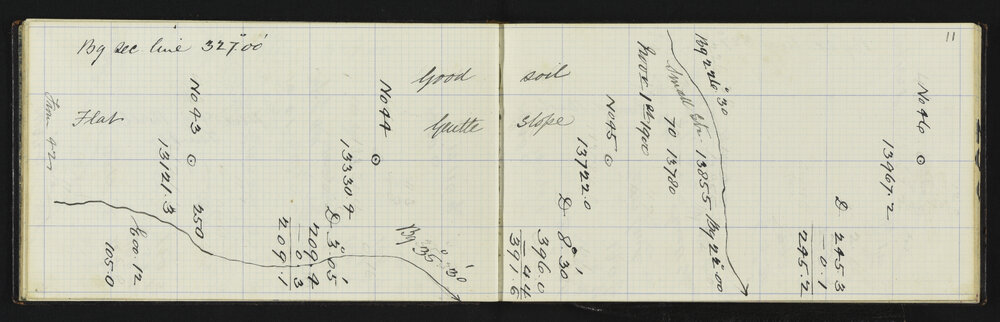 11
Bg sec line 327°.00'
Good soil
Flat
Gentle Slope
From 42
No 43
13121.3
250
600.12
1050
No 44
13330.4
D. 3°.05'
209.4
0.3
209.1
Bg 35°.30'
No 45
13722.0
D. 8°.30'
396.0
4.4
391.6
Nov 1st 1900
Small Str.
70 13700
Bg 226°.30
13855 Bg 22°.00
No 46
13967.2
D.
245.3
0.1
245.2